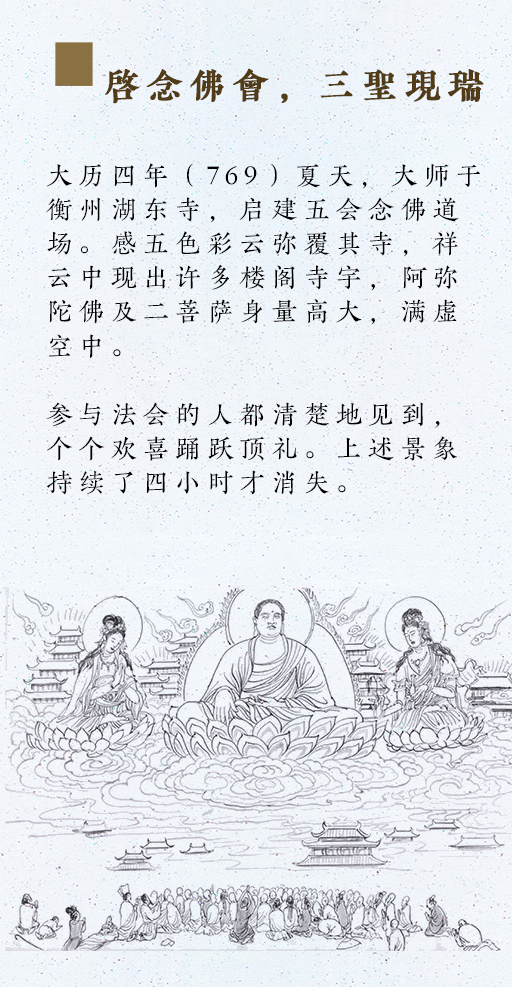 啓念佛會，三聖現瑞
大历四年（769）夏天，大师于
衡州湖东寺，启建五会念佛道
场。感五色彩云弥覆其寺，祥
云中现出许多楼阁寺宇，阿弥
陀佛及二菩萨身量高大，满虚
空中。
参与法会的人都清楚地见到，
个个欢喜踊跃顶礼。上述景象
持续了四小时才消失。